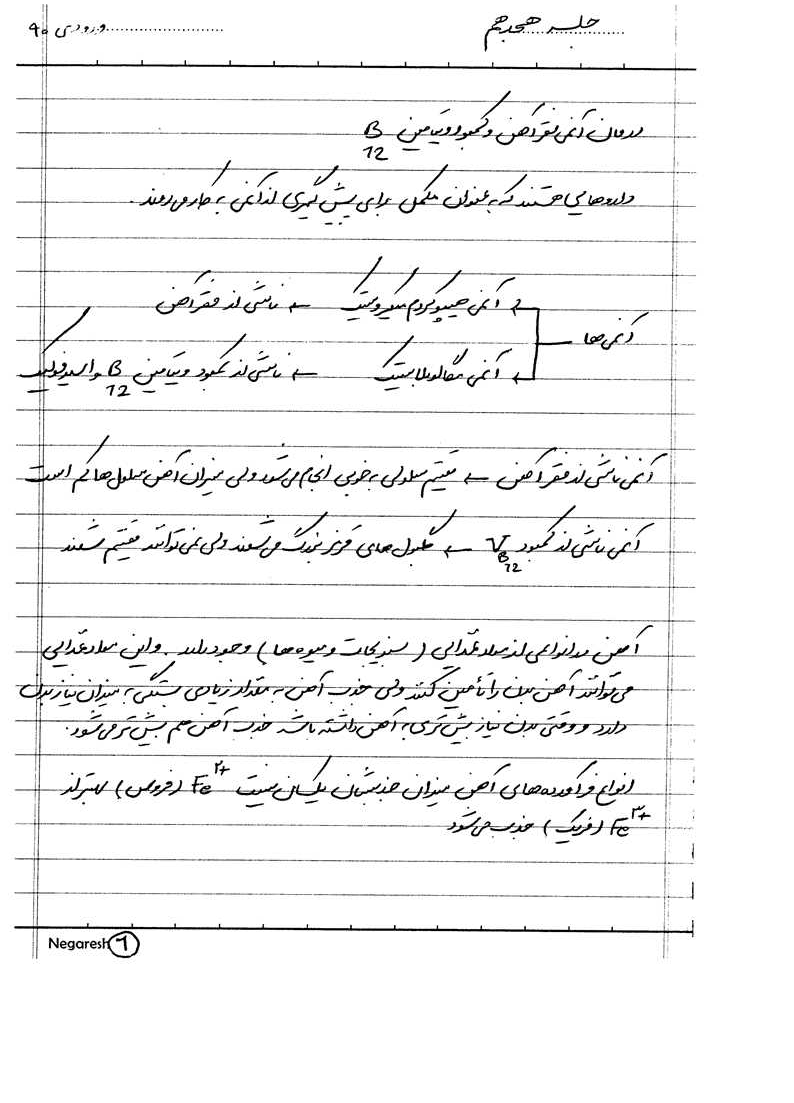 جلسه هجدهم
ورودی ۹۰
درمان آنمی فقر آهن و کمبود ویتامین B12
داروهایی هستند که به عنوان مکمل برای پیش گیری از آنمی به کار می روند.
آنمی ها
آنمی هیپوکروم میکروسیتیک ← ناشی از فقر آهن
آنمی مگالوبلاستیک ← ناشی از کمبود ویتامین B12 و اسید فولیک
آنمی ناشی از فقر آهن ← تقسیم سلولی به خوبی انجام می شود ولی میزان آهن سلول ها کم است
آنمی ناشی از کمبود VB12 ← گلبول های قرمز بزرگ می شوند ولی نمی توانند تقسیم شوند
آهن در انواعی از مواد غذایی (سبزیجات و میوه ها) وجود دارد. و این مواد غذایی
می توانند آهن بدن را تأمین کنند ولی جذب آهن به مقدار زیادی بستگی به میزان نیاز بدن
دارد و وقتی بدن نیاز بیش تری به آهن داشته باشد جذب آهن هم بیش تر می شود.
انواع فرآورده های آهن میزان جذبشان یکسان نیست Fe۲+ (فروس) بهتر از
Fe۳+ (فریک) جذب می شود
Negaresh 1